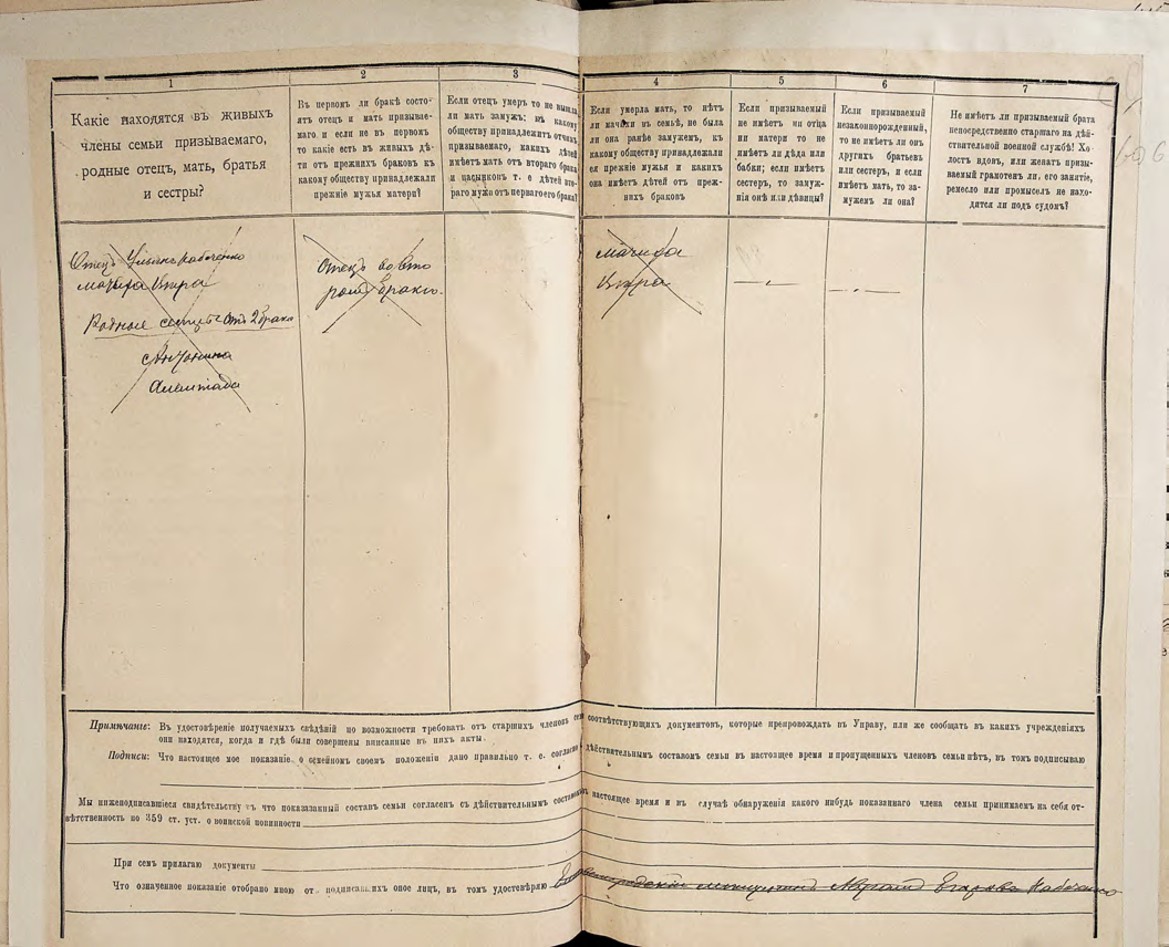 1
Какіе находятся въ живыхъ
члены семьи призываемаго,
родные отецъ, мать, братья
и сестры?
2
Въ первомъ ли бракѣ состо-
ятъ отецъ и мать призывае-
маго и если не въ первомъ
то какіе есть въ живыхъ дѣ-
ти отъ прежнихъ браковъ къ
какому обществу принадлежали
прежніе мужья матери?
3
Если отецъ умеръ то не вышла
ли мать замужъ: въ какому
обществу принадлежитъ отчимъ
призываемаго, какихъ дѣтей
имѣетъ мать отъ втораго брака
и пасынковъ т. е дѣтей вто-
раго мужа отъ перваго его брака?
4
Если умерла мать, то нѣтъ
ли мачихи въ семьѣ, не была
ли она ранѣе замужемъ, къ
какому обществу принадлежали
ея прежніе мужья и какихъ
она имѣетъ дѣтей отъ преж-
нихъ браковъ
5
Если призываемый
не имѣетъ ни отца
ни матери то не
имѣетъ ли дѣда или
бабки; если имѣетъ
сестеръ, то замуж-
нія онѣ или дѣвицы?
6
Если призываемый
незаконнорожденный,
то не имѣетъ ли онъ
другихъ братьевъ
или сестеръ, и если
имѣетъ мать, то за-
мужемъ ли она?
7
Не имѣетъ ли призываемый брата
непосредственно старшаго на дѣй-
ствительной военной службѣ! Хо-
лостъ вдовъ, или женатъ призы-
ваемый грамотенъ ли, его занятіе,
ремесло или промыселъ не нахо-
дится ли подъ судомъ?
Отецъ
мачиха
Родные отъ 2 брака
Антонина
Отецъ во вто
ромъ бракѣ.
мачиха
Примѣчаніе: Въ удостовѣреніе получаемыхъ свѣдѣній по возможности требовать отъ старшихъ членовъ семьи соотвѣтствующихъ документовъ, которые препровождать въ Управу, или же сообщать въ какихъ учрежденіяхъ
они находятся, когда и гдѣ были совершены вписанные въ нихъ акты.
Подписи: Что настоящее мое показаніе о семейномъ своемъ положеніи дано правильно т. е. согласно дѣйствительнымъ составомъ семьи въ настоящее время и пропущенныхъ членовъ семьи нѣтъ, въ томъ подписываю
Мы нижеподписавшіеся свидѣтельству ъ что показазанный составъ семьи согласенъ съ дѣйствительнымъ составомъ настоящее время и въ случаѣ обнаруженія какого нибудь показаннаго члена семьи принимаемъ на себя от-
вѣтственность по 359 ст. уст. о воинской повинности
При семъ прилагаю документы
Что означенное показаніе отобрано мною отъ подписавшихъ оное лицъ, въ томъ удостовѣряю